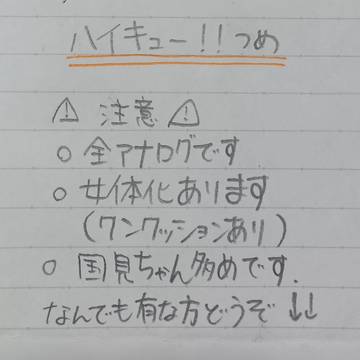 ハイキュー!!つめ
⚠ 注意 ⚠
○ 全アナログです
○ 女体化あります
(ワンクッションあり)
○ 国見ちゃん多めです.
なんでも有な方どうぞ ↓↓